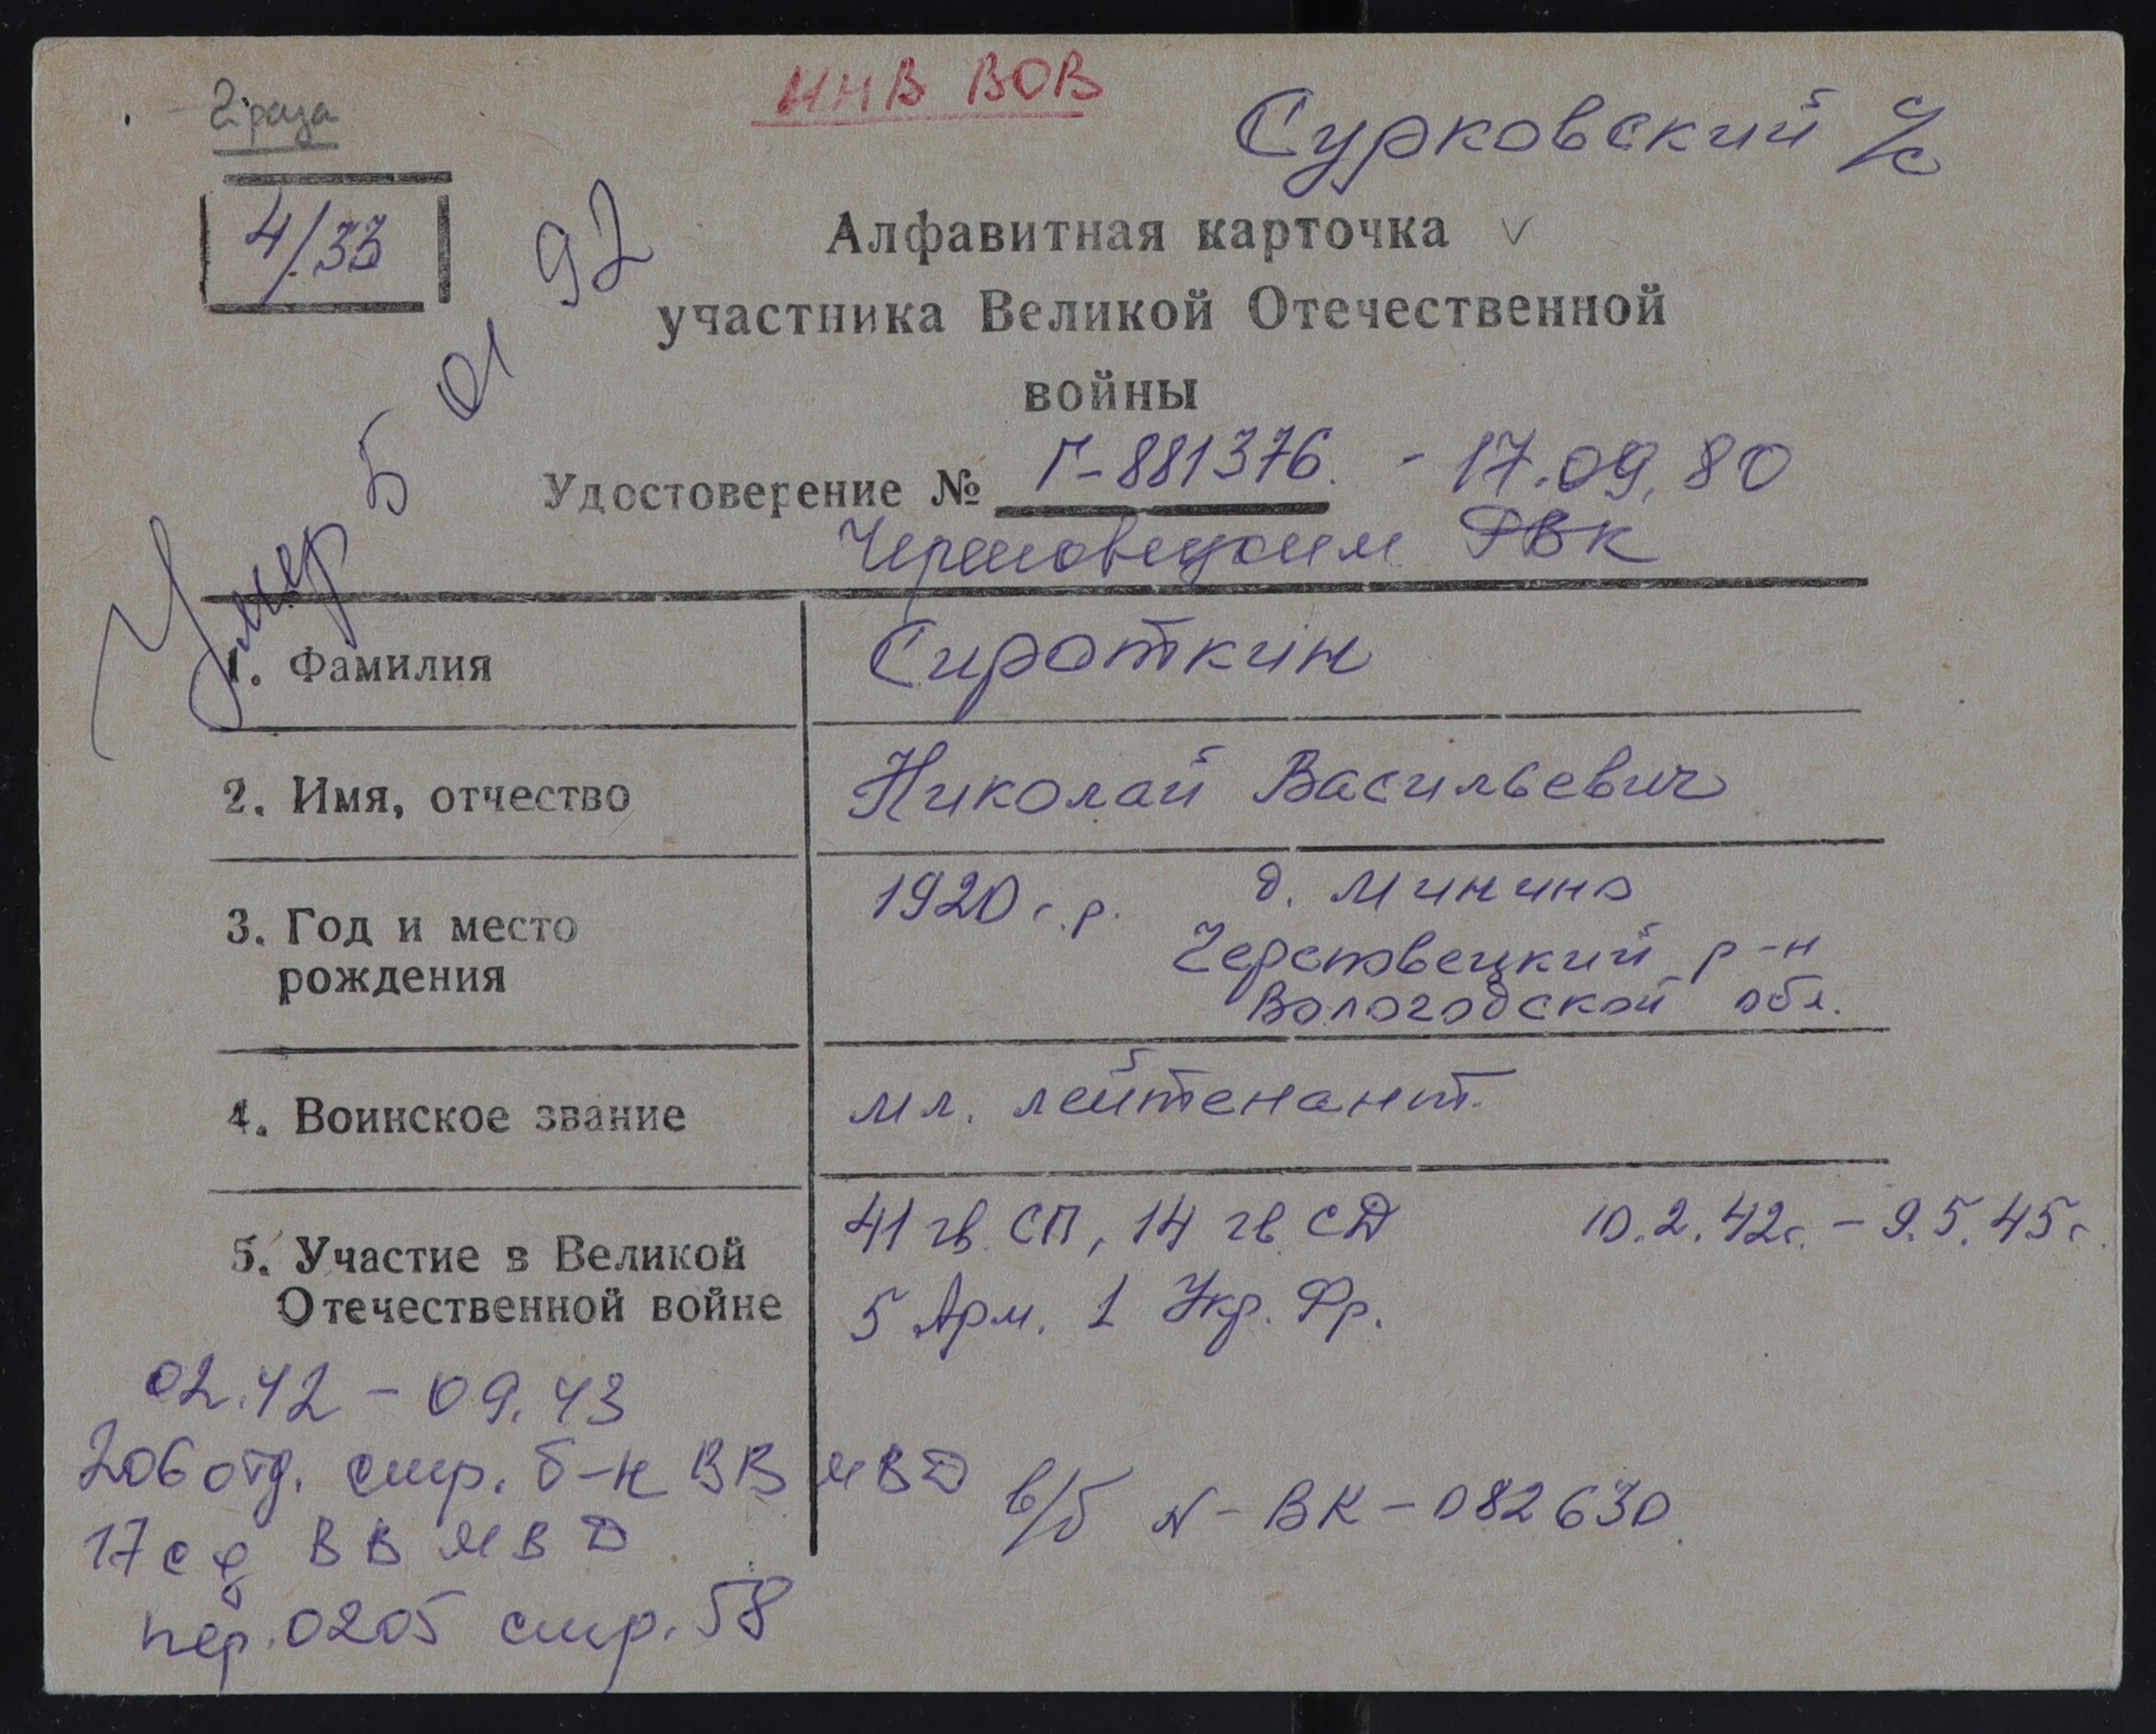 2 раза
ИНВ ВОВ
Сурковский с/с
4/33
Умер 5 01 92
Алфавитная карточка
участника Великой Отечественной
войны
Удостоверение № Г-881376. - 17.09.80
Череповецким РВК
1. Фамилия
Сироткин
2. Имя, отчество
Николай Васильевич
3. Год и место
рождения
1920 г.р. д. Минино
Череповецкий р-н
Вологодской обл.
4. Воинское звание
мл. лейтенант.
5. Участие в Великой
Отечественной войне
41 гв. СП, 14 гв. СД 10.2.42г. - 9.5.45г.
5 Арм. 1 Укр. Фр.
02.42 - 09.43
206 отд. стр. б-н ВВ МВД
17 сд ВВ МВД
пер. 0205 стр. 58
в/б N - ВК - 082630.